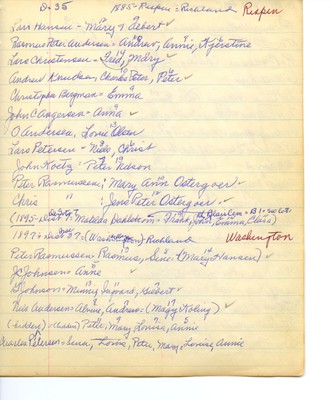 D-35 1885-Rispen = Richland Rispen
Lars Hansen - Mary & Hebert ✓
Rasmus Peter Andersen = Andrew, Annie, Kjerstine
Lars Christensen - Fred, Mary
Andrew Knudsen, Charles Peter, Peter ✓
Christopher Bergman = Emma
John C Angersen = Anna ✓
O Andersen, Louie Olsen
Lars Petersen - Niels, Christ
John Koetz = Peter Nelson
Peter Rasmussen; Mary Ann Ostergver ✓
Chris " : Jens Peter Ostergver ✓
(1895 - Dist 7: Matilda Frank, John, Emma, Clara)
1897 = Dist 37 = (Washington) Richland Washington
Peter Rasmussen = Rasmus, Sine (Mary Hansen) ✓
JC Johnson = Anne ✓
D Johnson = Minnie, Hebert ✓
Nia Andersen = Andrew = (Mary Koling) ✓
Peter, Mary, Louisa, Annie
Charles Petersen = Lena, Louis, Peter, Mary, Louise, Annie